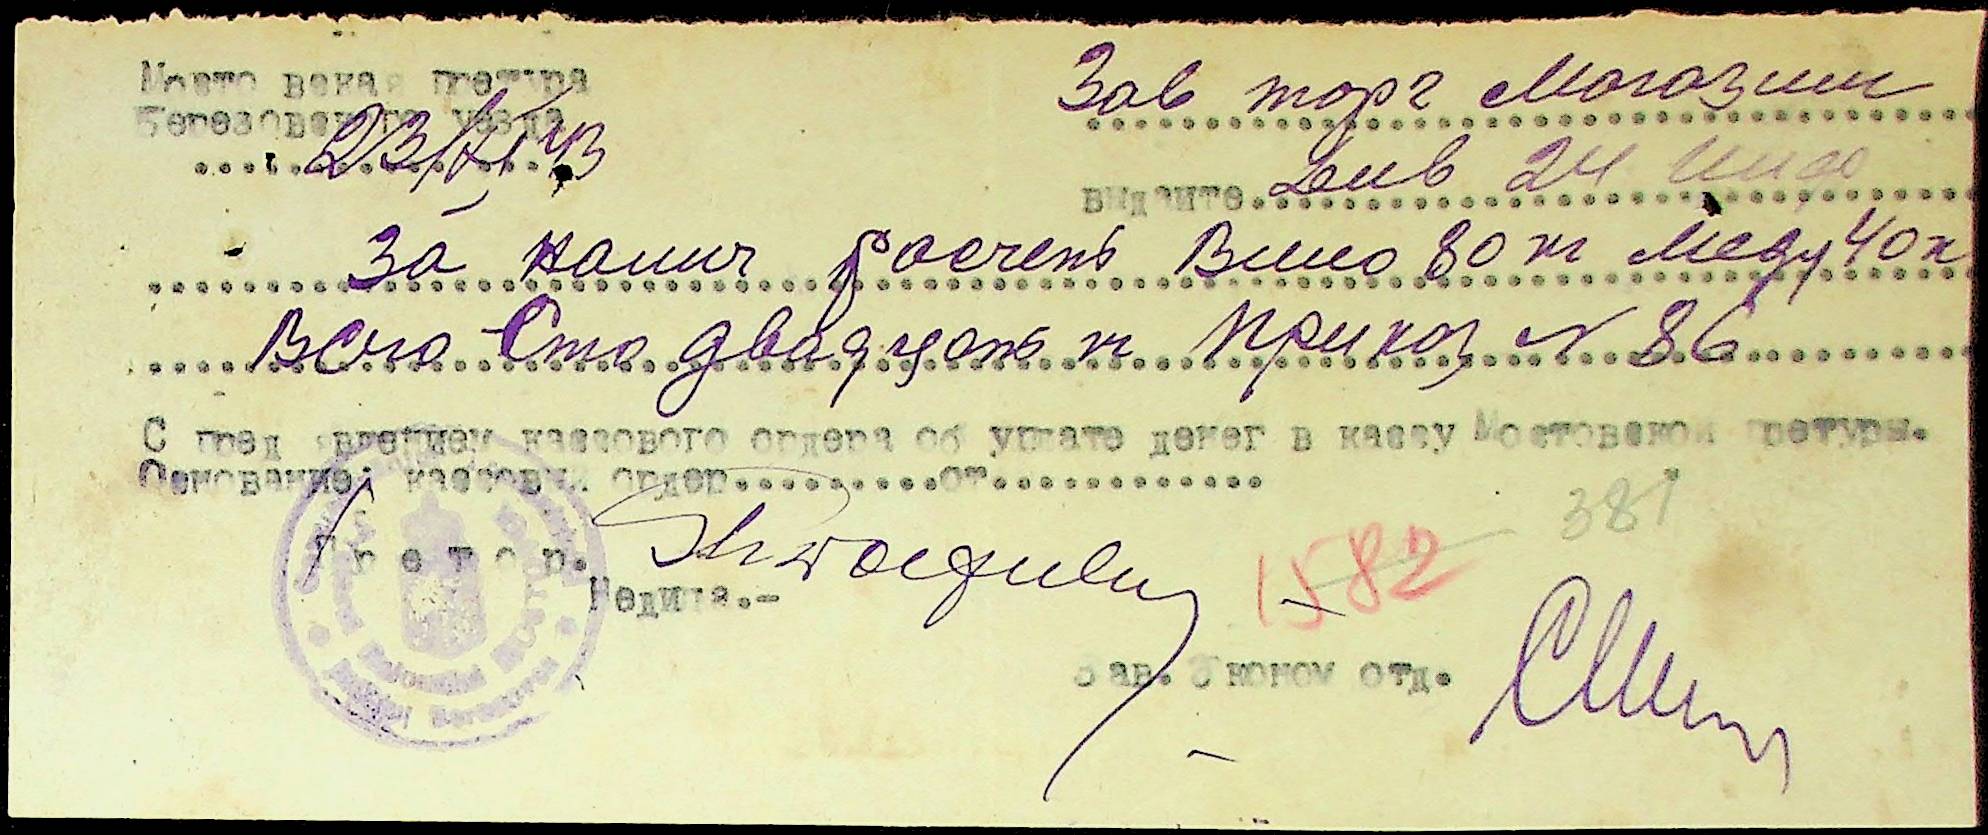 Мостовская претура
Березовского уезда
23/XI 43
Зав торг Магазин
выдайте
За налич расчет Вино 80 кг Меду 40 к
Всего Сто двадцать кг Приказ № 86
С пред явлением кассового ордера об уплате денег в кассу Мостовской претуры.
Основание: кассовый ордер.........от.............
Претор.
Недица.-
1582
381
Зав. Эконом отд.